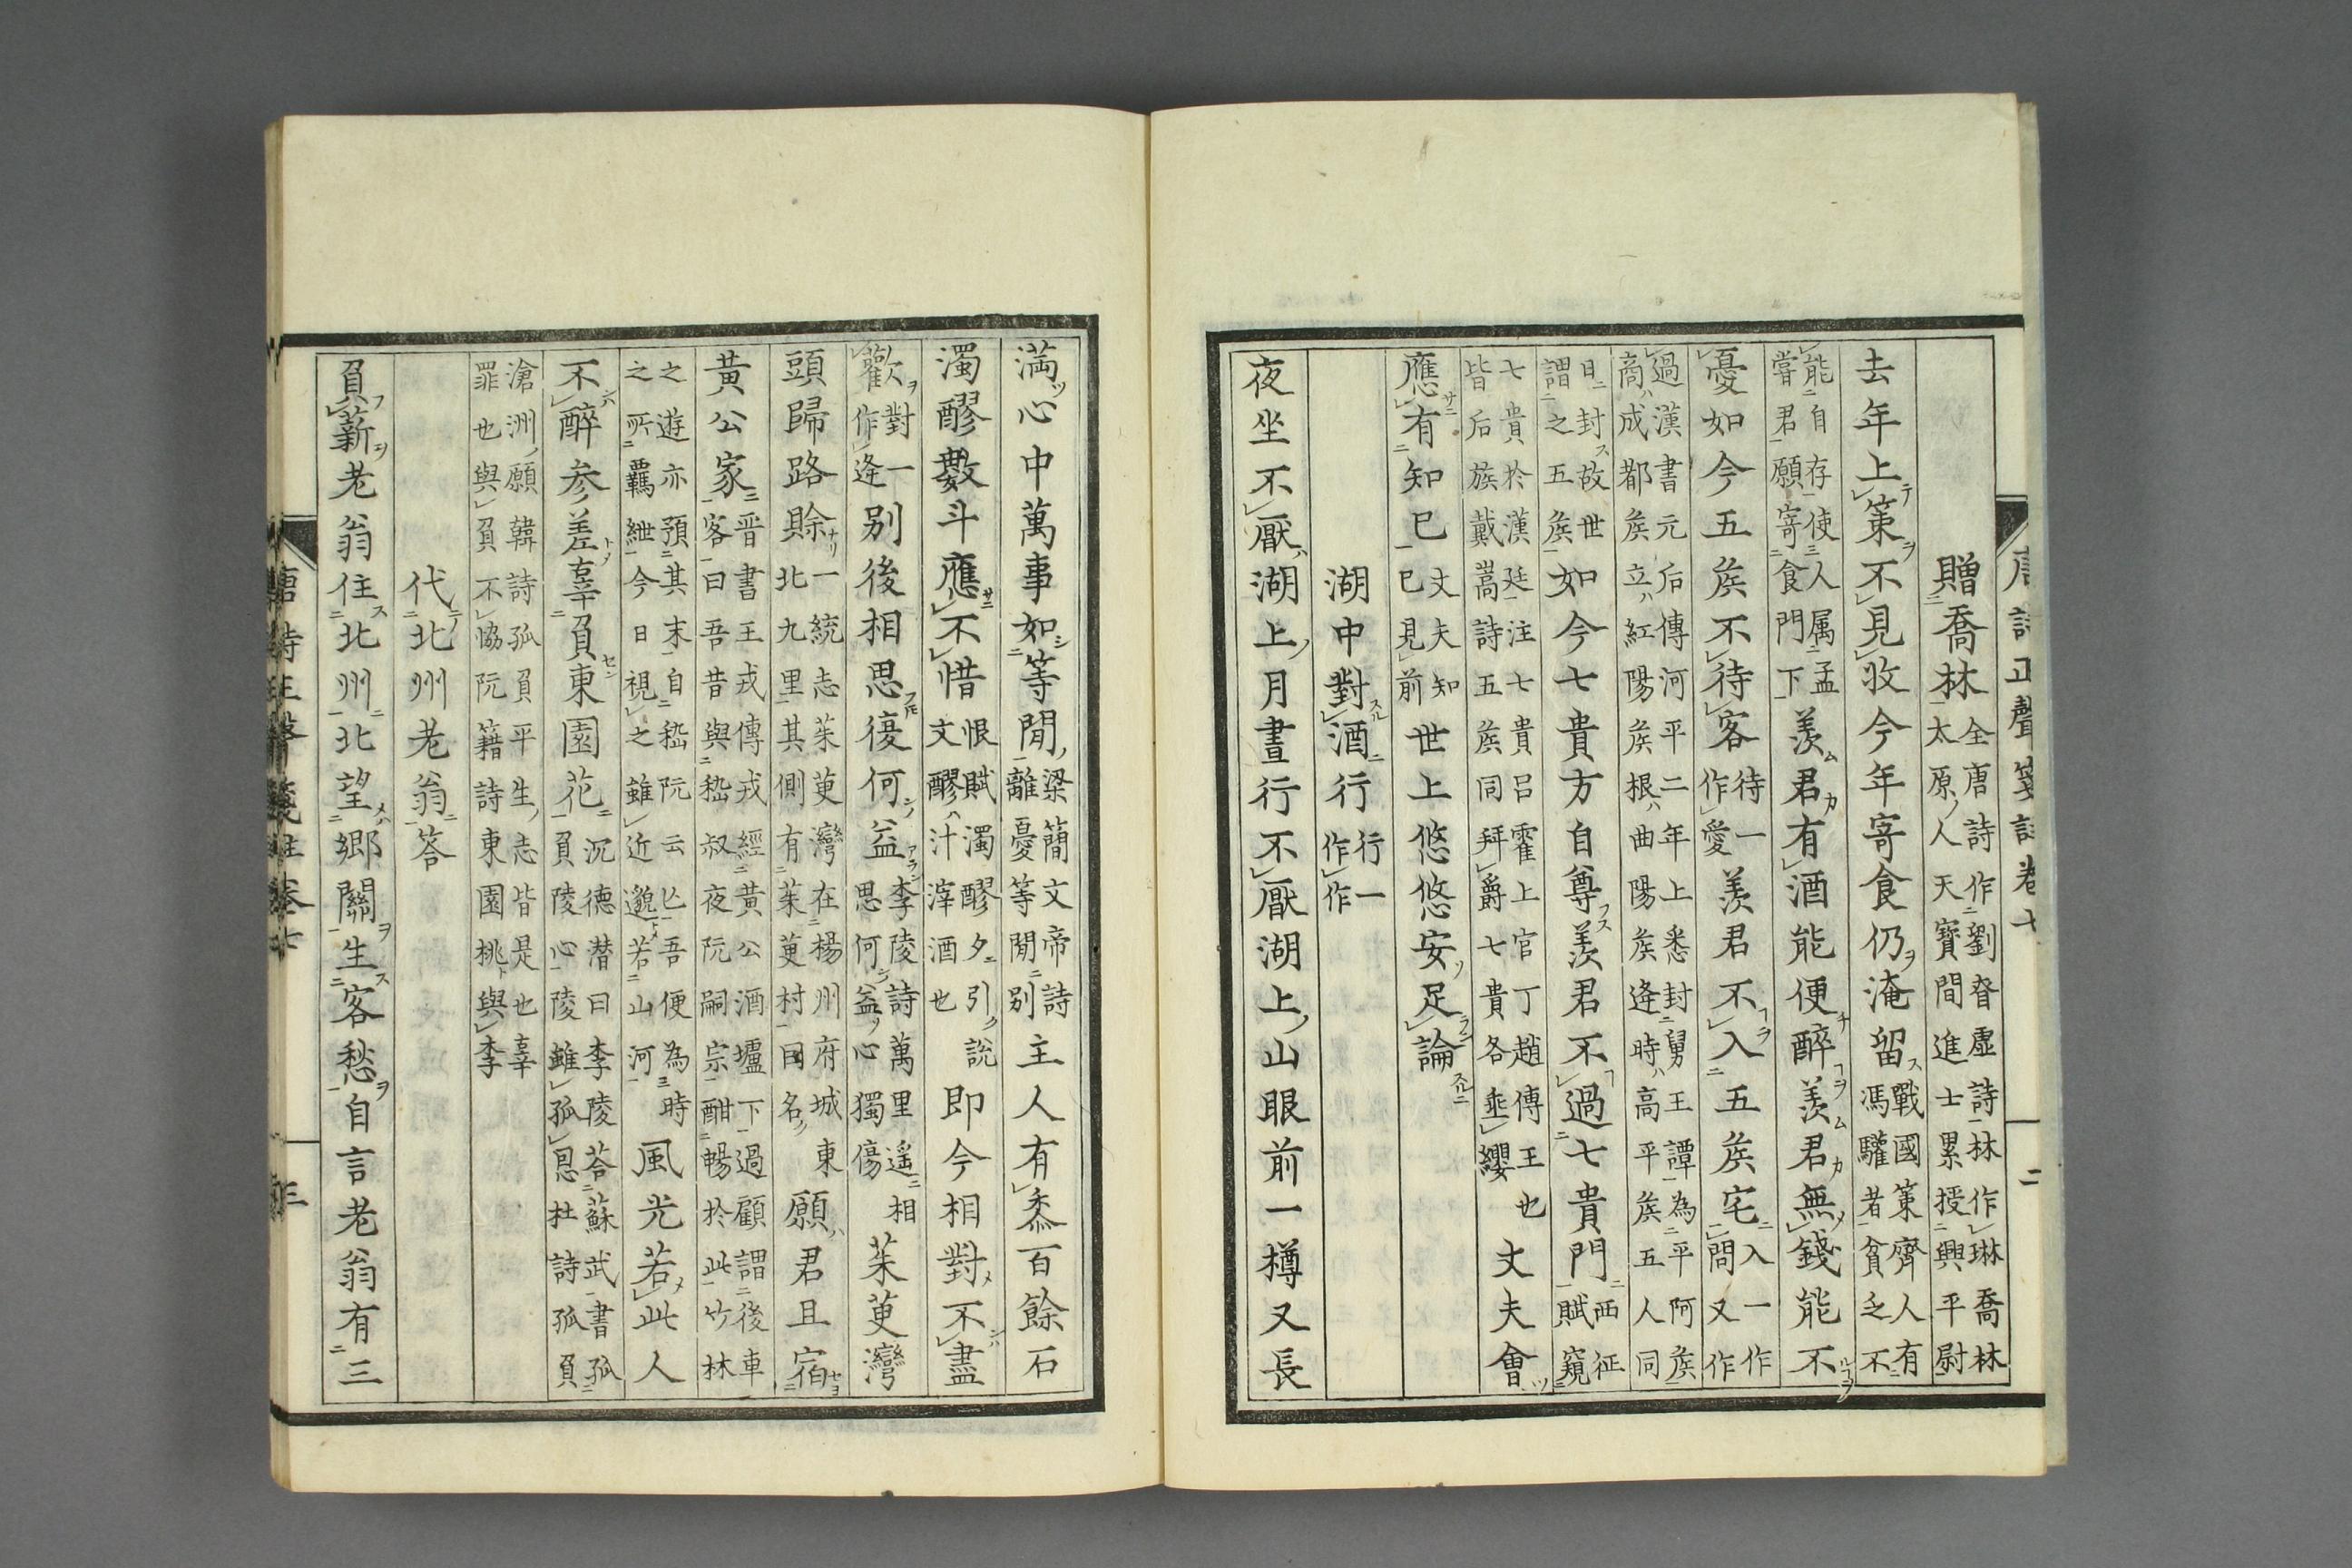 贈喬林全唐詩作劉眘虛詩林作琳喬林太原人天寶間進士累授興平尉
去年上策不見收今年寄食仍淹留戰國策齊人有馮驩者貧乏不
能自存使人属孟嘗君願寄食門下羨君有酒能便醉羨君無錢能不
憂如今五矦不待客待一作愛羨君不入五矦宅入一作問又作
過漢書元后傳河平二年上悉封舅王譚為平阿矦商成都矦立紅陽矦根曲陽矦逢時高平矦五人同
日封故世謂之五矦如今七貴方自尊羨君不過七貴門西征賦窺
七貴於漢廷注七貴呂霍上官丁趙傅王也皆后族戴暠詩五矦同拜爵七貴各垂纓丈夫會
應有知已丈夫知已見前世上悠悠安足論
湖中對酒行行一作作
夜坐不厭湖上月晝行不厭湖上山眼前一樽又長
満心中萬事如等閒梁簡文帝詩離憂等閒別主人有黍百餘石
濁醪數斗應不惜恨賦濁醪夕引說文醪汁滓酒也即今相對不盡
歡歡對一作逢别後相思復何益李陵詩萬里遥相思何益心獨傷茱萸灣
頭歸路賖一統志茱萸灣在楊州府城東北九里其側有茱萸村因名願君且宿
黃公家晋書王戎傳戎經黃公酒壚下過顧謂後車客曰吾昔與嵇叔夜阮嗣宗酣暢於此竹林
之遊亦預其末自嵇阮云亡吾便為時之所羈紲今日視之雖近邈若山河風光若此人
不醉参差辜負東園花沉德潜曰李陵荅蘇武書孤負陵心陵雖孤恩杜詩孤負
滄洲願韓詩孤負平生志皆是也辜罪也與負不恊阮籍詩東園桃與李
代北州老翁答
負薪老翁住北州北望鄉關生客愁自言老翁有三
唐詩正聲箋註卷七
二
唐詩正聲箋註卷七
三